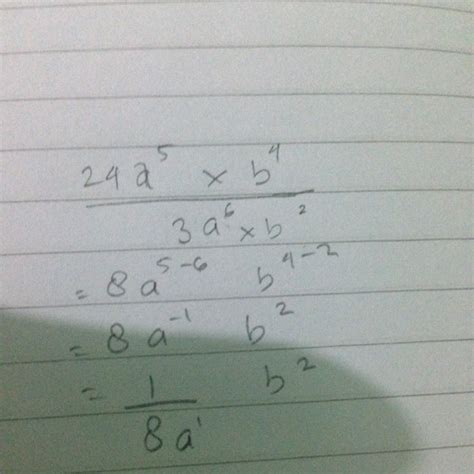 24a⁵ × b⁴
3a⁶ × b²
= 8a⁵⁻⁶ b⁴⁻²
= 8a⁻¹ b²
= 1 b²
8a¹